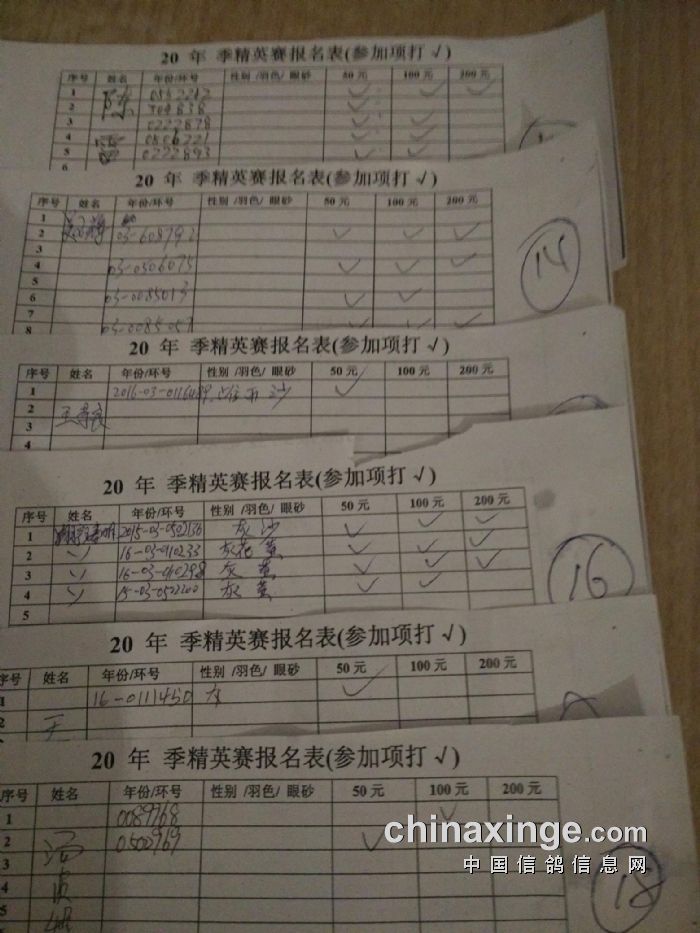 20 年 季精英赛报名表(参加项打 √)
序号 姓名 年份/环号 性别 /羽色/ 眼砂 50 元 100 元 200 元
1 ✓ ✓ ✓
2 陈 ✓
3 0222878 ✓ ✓
4 0806221 ✓ ✓
5 0222893 ✓ ✓
6
20 年 季精英赛报名表(参加项打 √)
序号 姓名 年份/环号 性别 /羽色/ 眼砂 50 元 100 元 200 元
1
2 03-608792 ✓ ✓ ✓
3
4 03-0506075 ✓ ✓ ✓
5
6 03-0085013 ✓ ✓
7
8 03-0085057 ✓ ✓ ✓
14
20 年 季精英赛报名表(参加项打 √)
序号 姓名 年份/环号 性别 /羽色/ 眼砂 50 元 100 元 200 元
1 2016-03-0116489 沙 ✓
2 王
3
4
20 年 季精英赛报名表(参加项打 √)
序号 姓名 年份/环号 性别 /羽色/ 眼砂 50 元 100 元 200 元
1 2015-03-0502136 灰 沙 ✓ ✓ ✓
2 16-03-010233 灰花 黄 ✓ ✓ ✓
3 16-03-010298 灰 黄 ✓ ✓ ✓
4 15-03-0502200 灰 黄 ✓ ✓
5
16
20 年 季精英赛报名表(参加项打 √)
序号 姓名 年份/环号 性别 /羽色/ 眼砂 50 元 100 元 200 元
1 16-0111450 ✓
2 王
20 年 季精英赛报名表(参加项打 √)
序号 姓名 年份/环号 性别 /羽色/ 眼砂 50 元 100 元 200 元
1 0089768 ✓
2 0502969 ✓
3
4
5
18
chinaxinge.com
中国信鸽信息网